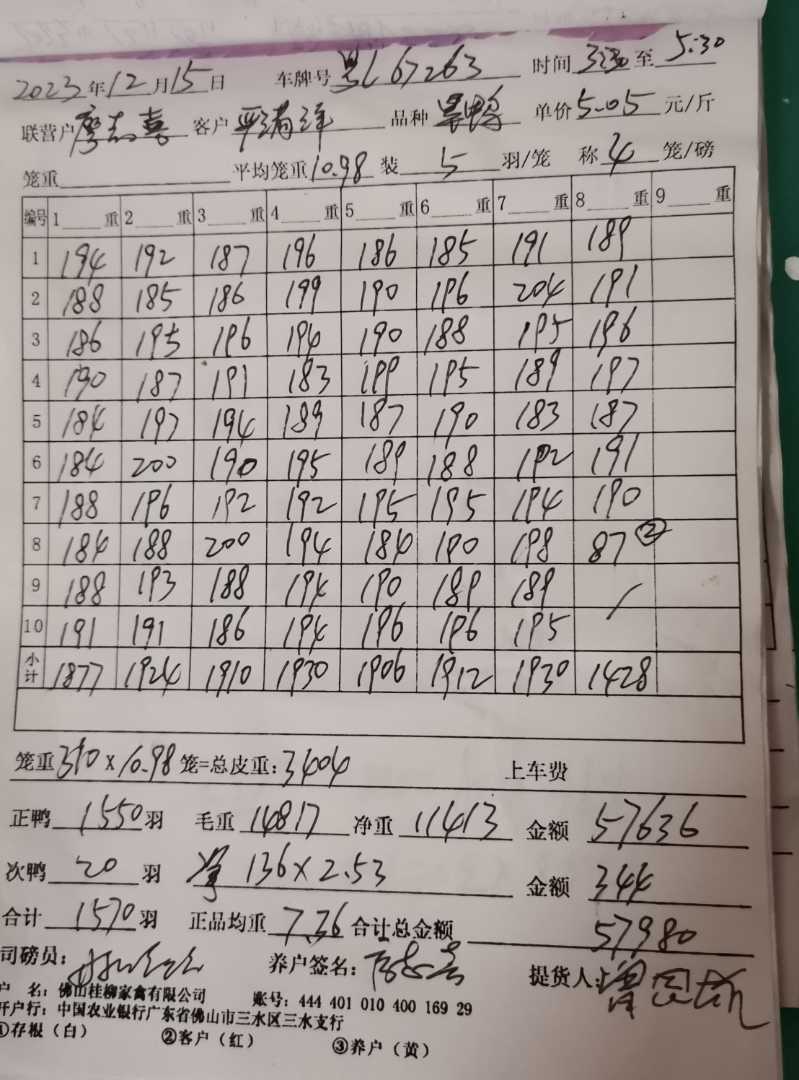 2023年12月15日 车牌号 粤L67263 时间 3:30 至 5:30
联营户 廖志喜 客户 严满洋 品种 单价 5.05 元/斤
笼重 平均笼重 10.98 装 5 羽/笼 称 4 笼/磅
编号 1 重 2 重 3 重 4 重 5 重 6 重 7 重 8 重 9 重
1 194 192 187 196 186 185 191 189
2 188 185 186 199 190 196 204 191
3 186 195 196 194 190 188 195 196
4 190 187 191 183 199 195 189 197
5 184 197 194 189 187 190 183 187
6 184 200 190 195 189 188 192 191
7 188 196 192 192 195 195 194 190
8 184 188 200 194 184 190 198 87 ②
9 188 193 188 194 190 189 189 /
10 191 191 186 194 196 196 195
小计 1877 1924 1910 1930 1906 1912 1930 1428
笼重 310 x 10.98 笼=总皮重: 3404 上车费
正鸭 1550 羽 毛重 14817 净重 11413 金额 57636
次鸭 20 羽 136 x 2.53 金额 344
合计 1570 羽 正品均重 7.36 合计总金额 57980
司磅员: 养户签名: 廖志喜 提货人:
户 名: 佛山桂柳家禽有限公司 账号: 444 401 010 400 169 29
开户行: 中国农业银行广东省佛山市三水区三水支行
①存根（白） ②客户（红） ③养户（黄）